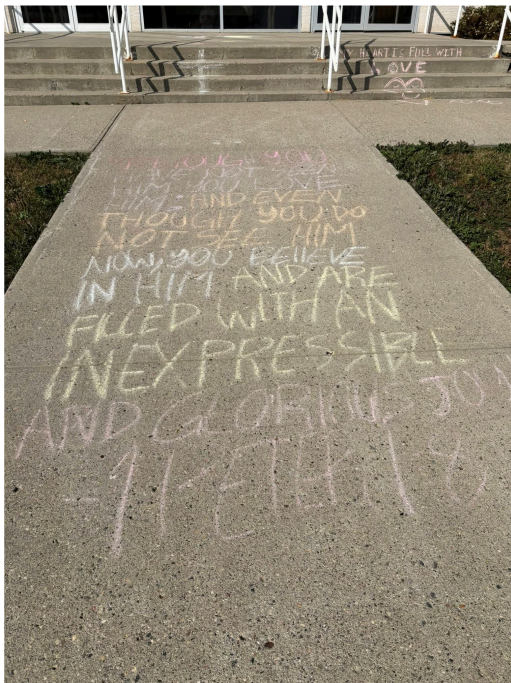 MY HEART IS FULL WITH
LOVE
THOUGH YOU
HAVE NOT SEEN
HIM, YOU LOVE
HIM; AND EVEN
THOUGH YOU DO
NOT SEE HIM
NOW, YOU BELIEVE
IN HIM AND ARE
FILLED WITH AN
INEXPRESSIBLE
AND GLORIOUS JOY
-1 PETER 1